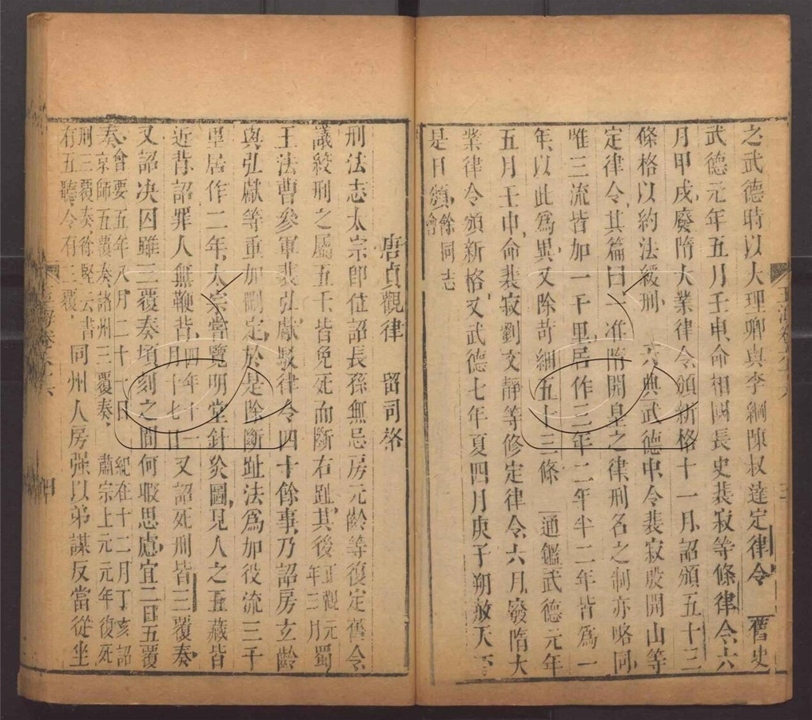 之武德時以大理卿與李綱陳叔達定律令 舊史
武德元年五月壬申命相國長史裴寂等條律令六
月甲戌廢隋大業律令頒新格十一月詔頒五十三
條格以約法緩刑 六典武德中令裴寂殷開山等
定律令其篇目一准隋開皇之律刑名之制亦略同
唯三流皆加一千里居作三年二年半二年皆為一
年以此為異又除苛細五十三條 通鑑武德元年
五月壬申命裴寂劉文靜等修定律令六月廢隋大
業律令頒新格又武德七年夏四月庚子朔赦天下
是日頒 餘同志
唐貞觀律 留司格
刑法志太宗即位詔長孫無忌房元齡等復定舊令
議絞刑之屬五十皆免死而斷右趾其後 元 年三月蜀
王法曹參軍裴弘獻駁律令四十餘事乃詔房玄齡
與弘獻等重加刪定於是除斷趾法為加役流三千
里居作二年太宗嘗覽明堂針灸圖見人之五藏皆
近背詔罪人無鞭背 四年十一月十七日 又詔死刑皆三覆奏
又詔决囚雖三覆奏頃刻之間何暇思慮宜二日五覆
奏 會要五年八月二十一日 紀在十二月丁亥詔京師五覆奏諸州三覆奏 肅宗上元元年復死
刑三覆奏徐堅云書有五聽令有三覆 同州人房強以弟謀反當從坐